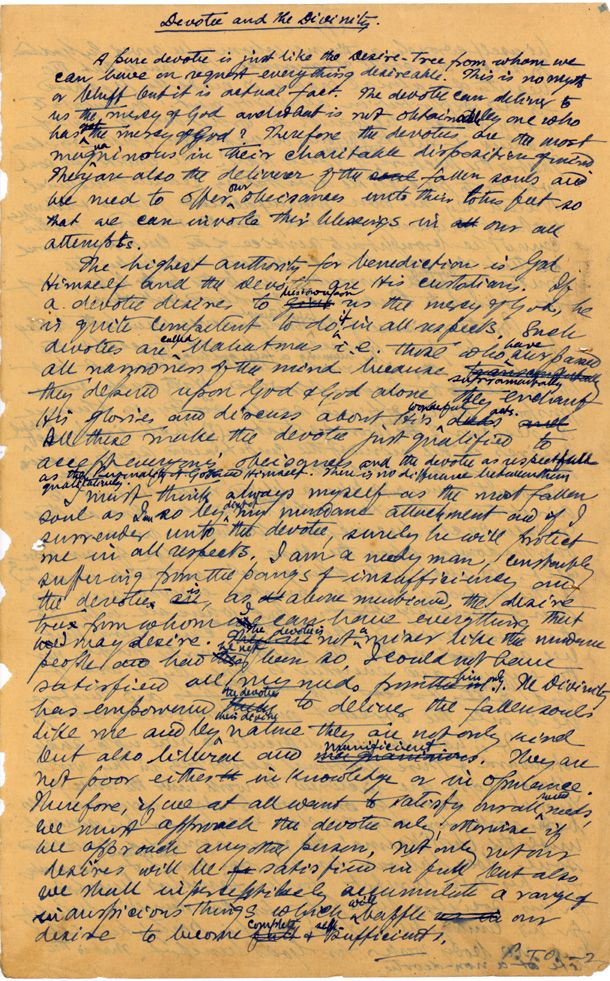 Devotee and the Divinity.
A pure devotee is just like the desire-tree from whom we
can have on request everything desireable. This is no myth
or bluff but it is actual fact. The devotee can deliver to
us the mercy of God and what is not obtainable by one who
has got the mercy of God? Therefore the devotees are the most
magnanimous in their charitable disposition of mind
They are also the deliverer of the fallen souls and
we need to offer our obeisances unto their lotus feet so
that we can invoke their blessings in our all
attempts.
The highest authority for benediction is God
Himself and the devotees are His custodians. If
a devotee desires to bestow upon us the mercy of God, he
is quite competent to do it in all respects. Such
devotees are called Mahatmas i.e. those who have surpassed
all narrowness of the mind because
they depend upon God & God alone. They enchant
His glories and discuss about His wonderful acts.
All these make the devotee just qualified to
accept everyone's obeisances and the devotee as respectful
as the Personality of Godhead Himself. There is no difference between them
qualitatively
I must think always myself as the most fallen
soul as I am so being mundane attachment and if I
surrender unto the devotee, surely he will protect
me in all respects. I am a needy man, constantly
suffering from the pangs of insufficiency and
the devotees are, as above mentioned, the desire
tree from whom I can have everything that
I may desire. The devotee is not a miser like the mundane
people and had he not been so, I could not have
satisfied all my needs from him only. The Divinity
has empowered the devotee to deliver the fallen souls
like me and by their divine nature they are not only kind
but also liberal and munificient. They are
not poor either in knowledge or in opulence.
Therefore, if we at all want to satisfy our all needs,
we must approach the devotee only, otherwise if
we approach any other person, not only not our
desires will be satisfied in full but also
we shall imperceptibly accumulate a range of
inauspicious things which will baffle our
desire to become complete & self-sufficient.
P.T.O-2